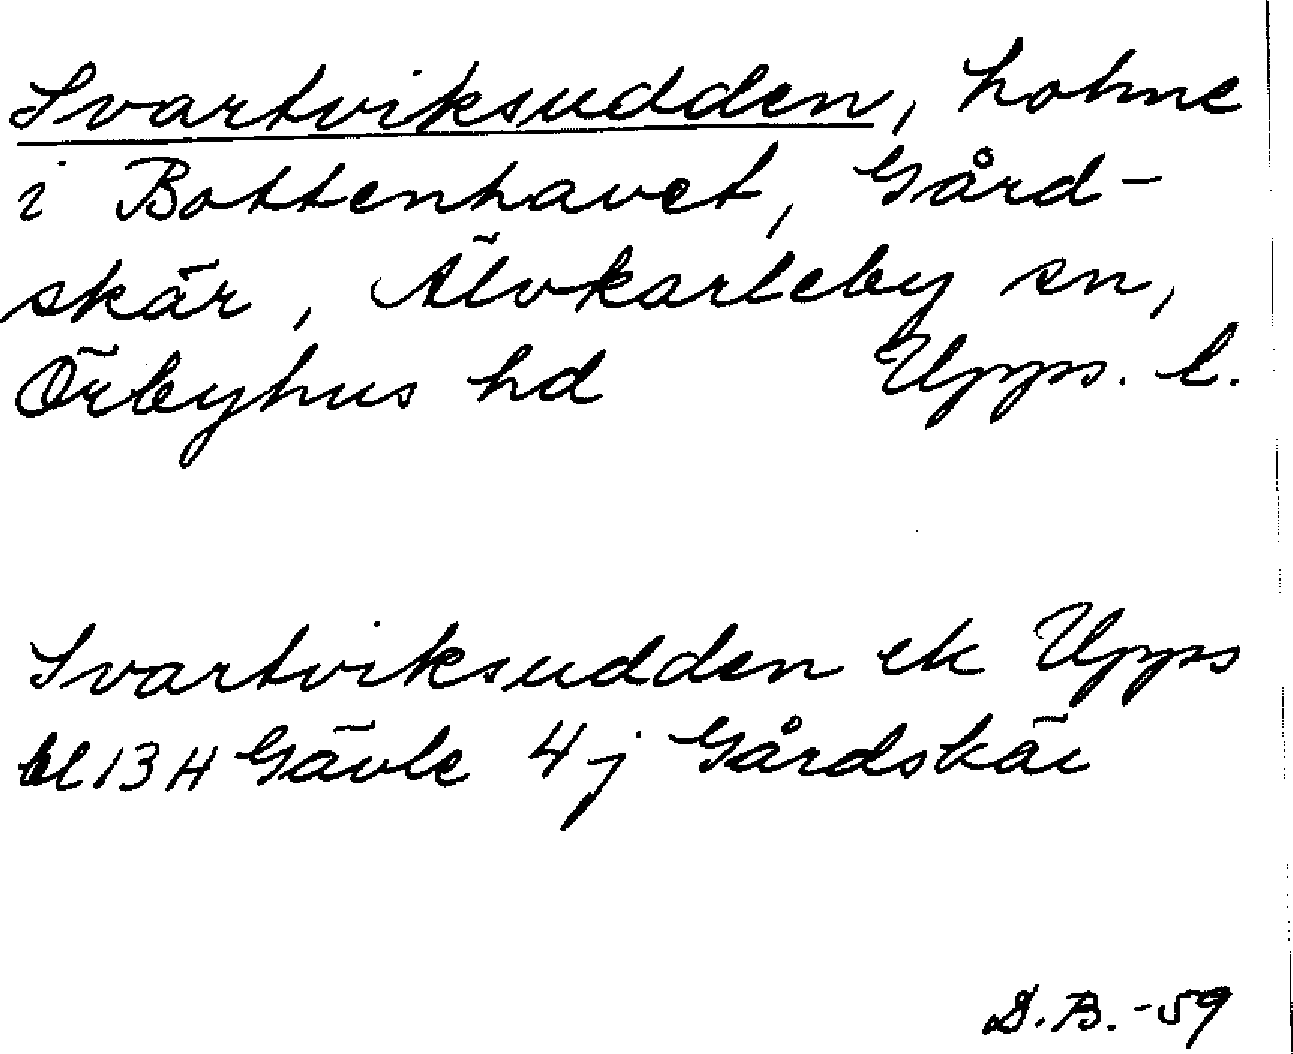 Svartviksudden, holme
i Bottenhavet, Gård-
skär, Älvkarleby sn,
Örbyhus hd Upps. l.
Svartviksudden ek Upps
bl 13 H Gävle 4 j Gårdskär
D.B. -59